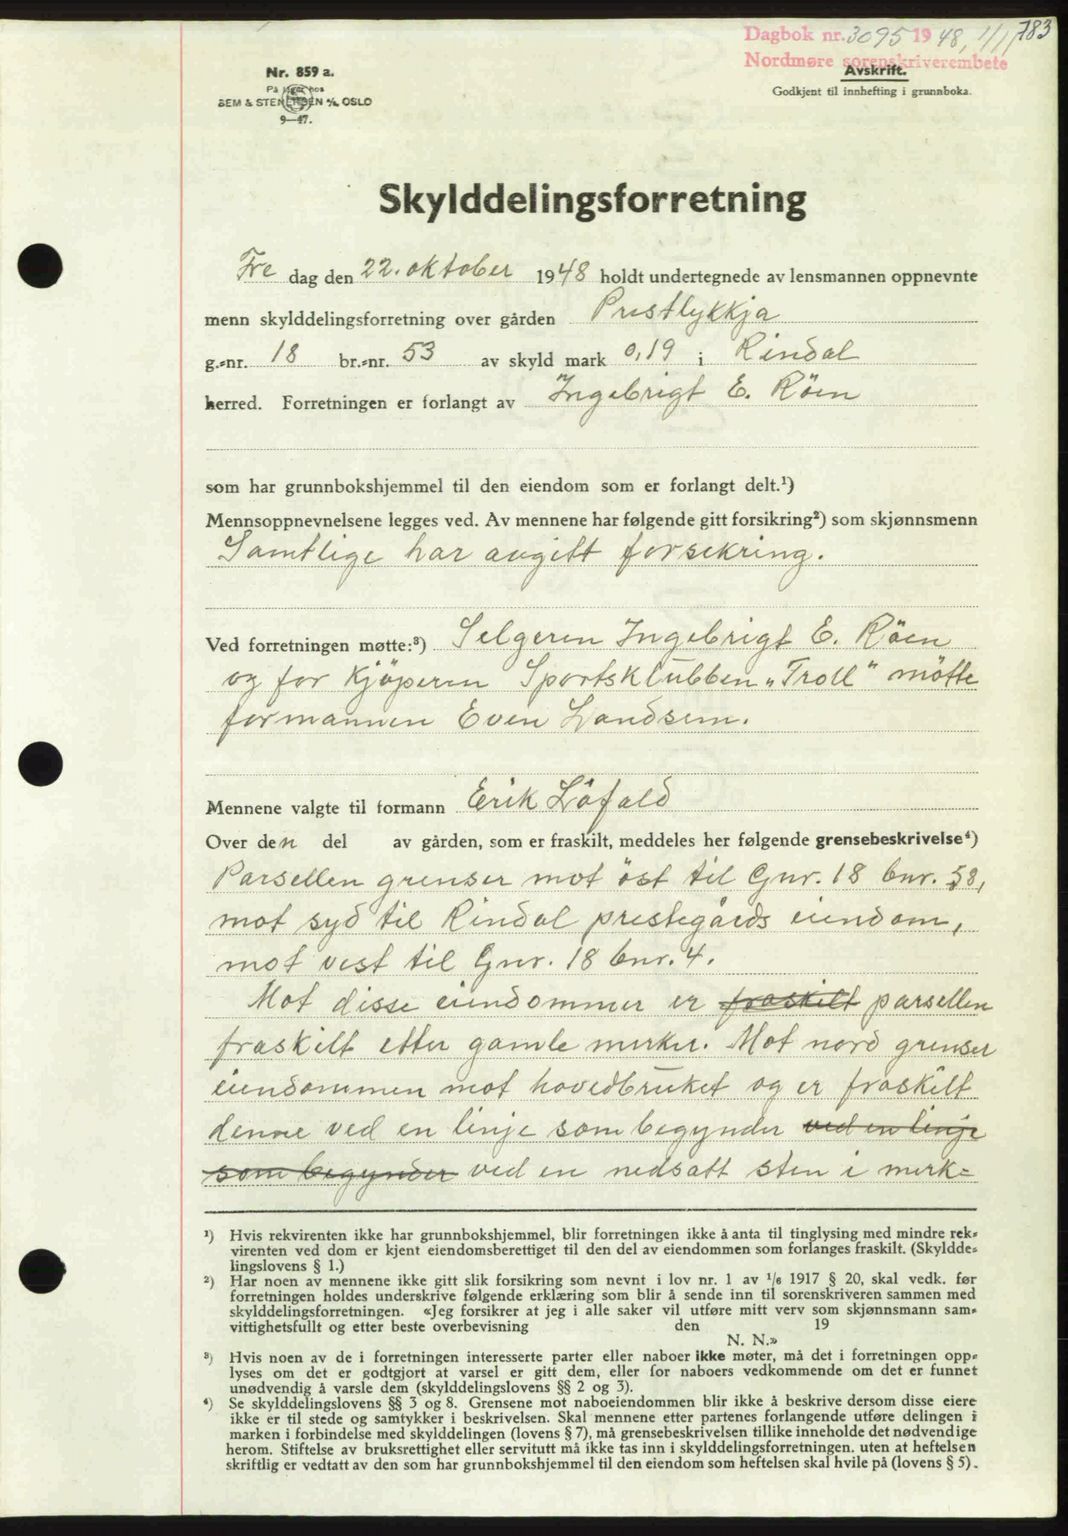 783
Dagbok nr. 3095 1948, 1/11
Nordmøre sorenskriverembete
Avskrift.
Godkjent til innhefting i grunnboka.
Nr. 859 a.
På lager hos
SEM & STENERSEN A/S, OSLO
9—47.
Skylddelingsforretning
Fre dag den 22. oktober 1948 holdt undertegnede av lensmannen oppnevnte
menn skylddelingsforretning over gården Prestlykkja
g.-nr. 18 br.-nr. 53 av skyld mark 0,19 i Rindal
herred. Forretningen er forlangt av Ingebrigt E. Röen
som har grunnbokshjemmel til den eiendom som er forlangt delt.¹)
Mennsoppnevnelsene legges ved. Av mennene har følgende gitt forsikring²) som skjønnsmenn
Samtlige har avgitt forsekring.
Ved forretningen møtte:³) Selgeren Ingebrigt E. Röen
og for Kjöperen Sportsklubben „Troll" mötte
formannen Even Landsem.
Mennene valgte til formann Erik Löfald
Over den del av gården, som er fraskilt, meddeles her følgende grensebeskrivelse⁴)
Parsellen grenser mot öst til Gnr. 18 bnr. 58,
mot syd til Rindal prestegårds eiendom,
mot vest til Gnr. 18 bnr. 4.
Mot disse eiendommer er fraskilt parsellen
fraskilt etter gamle merker. Mot nord grenser
eiendommen mot hovedbruket og er fraskilt
denne ved en linje som begynder ved en linje
som begynder ved en nedsatt sten i merk=
¹) Hvis rekvirenten ikke har grunnbokshjemmel, blir forretningen ikke å anta til tinglysing med mindre rek-
virenten ved dom er kjent eiendomsberettiget til den del av eiendommen som forlanges fraskilt. (Skyldde-
lingslovens § 1.)
²) Har noen av mennene ikke gitt slik forsikring som nevnt i lov nr. 1 av 1/6 1917 § 20, skal vedk. før
forretningen holdes underskrive følgende erklæring som blir å sende inn til sorenskriveren sammen med
skylddelingsforretningen. «Jeg forsikrer at jeg i alle saker vil utføre mitt verv som skjønnsmann sam-
vittighetsfullt og etter beste overbevisning den 19
N. N.»
³) Hvis noen av de i forretningen interesserte parter eller naboer ikke møter, må det i forretningen opp-
lyses om det er godtgjort at varsel er gitt dem, eller for naboers vedkommende om det er funnet
unødvendig å varsle dem (skylddelingslovens §§ 2 og 3).
⁴) Se skylddelingslovens §§ 3 og 8. Grensene mot naboeiendommen blir ikke å beskrive dersom disse eiere
ikke er til stede og samtykker i beskrivelsen. Skal mennene etter partenes forlangende utføre delingen i
marken i forbindelse med skylddelingen (lovens § 7), må grensebeskrivelsen tillike inneholde det nødvendige
herom. Stiftelse av bruksrettighet eller servitutt må ikke tas inn i skylddelingsforretningen. uten at heftelsen
skriftlig er vedtatt av den som har grunnbokshjemmel til den eiendom som heftelsen skal hvile på (lovens § 5).